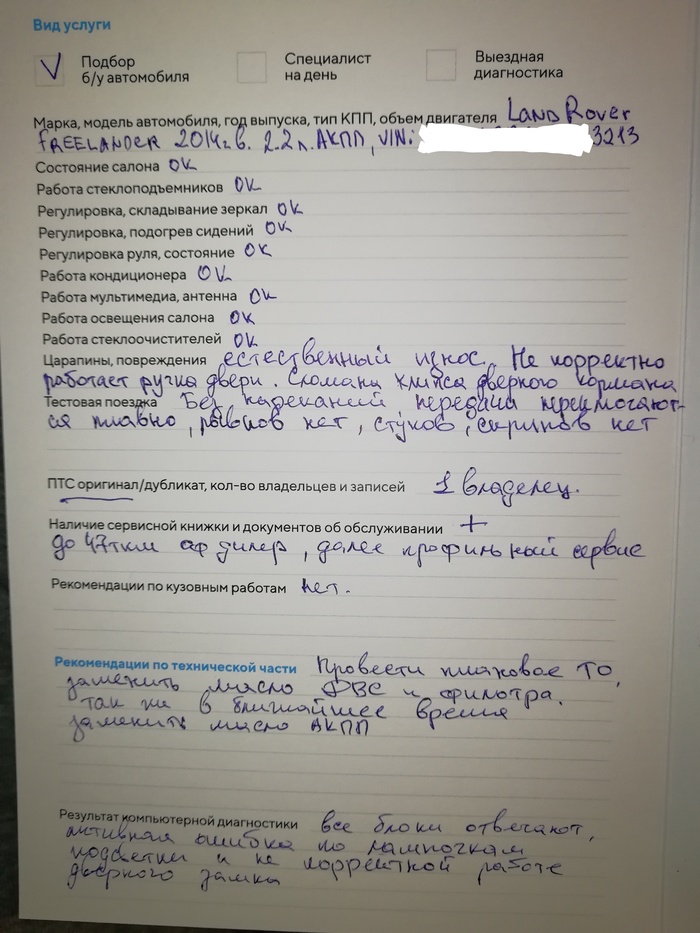 Вид услуги
V Подбор б/у автомобиля Специалист на день Выездная диагностика
Марка, модель автомобиля, год выпуска, тип КПП, объем двигателя Land Rover
FREELANDER 2014г.в. 2.2л. АКПП, VIN: 3213
Состояние салона ОК
Работа стеклоподъемников ОК
Регулировка, складывание зеркал ОК
Регулировка, подогрев сидений ОК
Регулировка руля, состояние ОК
Работа кондиционера ОК
Работа мультимедиа, антенна ОК
Работа освещения салона ОК
Работа стеклоочистителей ОК
Царапины, повреждения естественный износ. Не корректно
работает ручка двери. Сломана клипса дверного кармана
Тестовая поездка Без нареканий, передачи переключают-
ся плавно, рывков нет, стуков, скрипов нет
ПТС оригинал/дубликат, кол-во владельцев и записей 1 владелец.
Наличие сервисной книжки и документов об обслуживании +
до 47ткм оф дилер, далее профильный сервис
Рекомендации по кузовным работам нет.
Рекомендации по технической части Провести плановое ТО,
заменить масло ДВС и фильтра.
так же в ближайшее время
заменить масло АКПП
Результат компьютерной диагностики все блоки отвечают,
активная ошибка по лампочкам
подсветки и не корректной работе
дверного замка